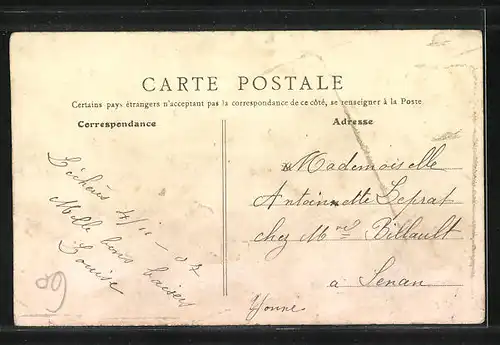 CARTE POSTALE
Certains pays étrangers n'acceptent pas la correspondance de ce côté, se renseigner à la Poste
Correspondance
Adresse
4/11 - 07
Mille bons baisers
Louise
Mademoiselle
Antoinnette Leprat
chez Mme Billault
à Senan
Yonne